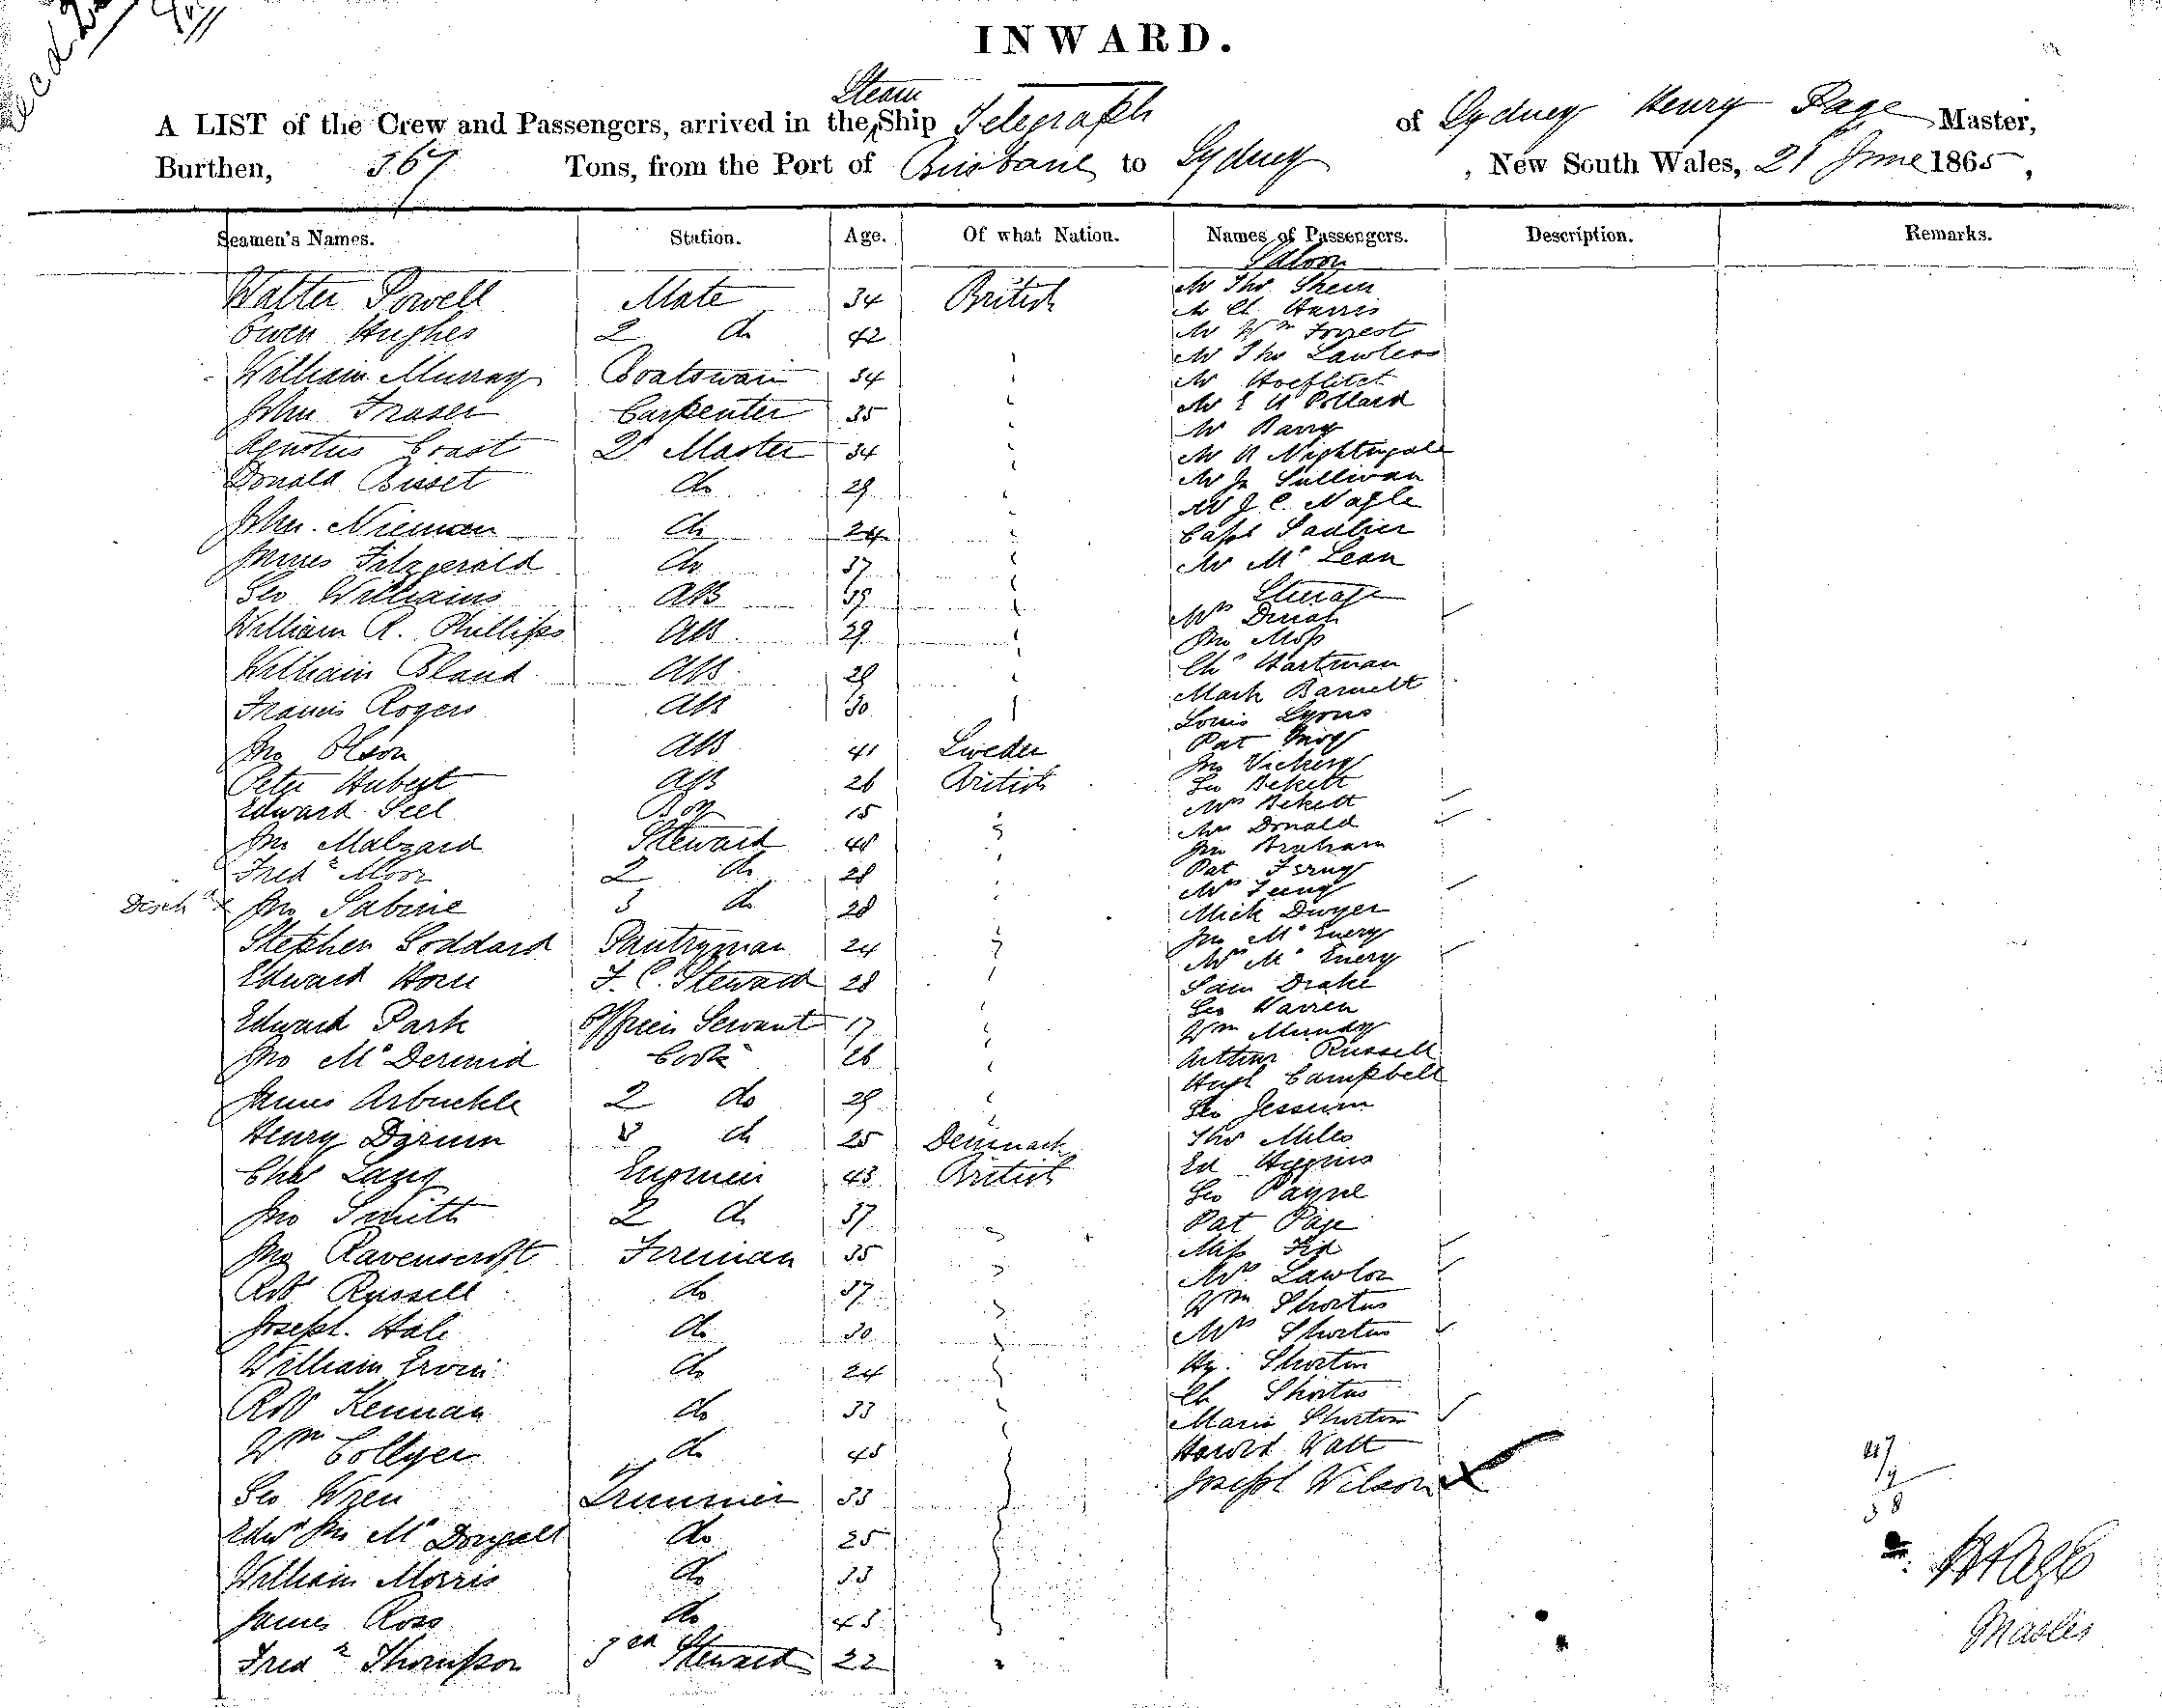 INWARD.
A LIST of the Crew and Passengers, arrived in the Steam Ship Telegraph of Sydney Henry Page Master,
Burthen, 367 Tons, from the Port of Brisbane to Sydney, New South Wales, 21 June 1865,
Seamen's Names. Station. Age. Of what Nation. Names of Passengers. Description. Remarks.
Walter Powell Mate 34 British
Owen Hughes 2 do 42
William Murray Boatswain 34
John Fraser Carpenter 35
Coast Qr Master 34
Donald Bisset do 29
John Nieman do 24
James Fitzgerald do 37
Geo Williams AB 39
William R. Phillips AB 29
William Bland AB 29
Francis Rogers AB 30
Jno Olson AB 41 Sweden
Peter Hubert AB 26 British
Edward Seel Boy 15
Jno Malzard Steward 48
Fredk Moor 2 do 28
Disch x Jno Sabine 3 do 28
Stephen Goddard Pantryman 24
Edward Horn F. C. Steward 28
Edward Park Officers Servant 17
Jno McDermid Cook 26
James Arbuckle 2 do 29
Henry 3 do 25 Denmark
Chas Engineer 43 British
Jno Smith 2 do 37
Jno Ravenscroft Fireman 35
Robt Russell do 37
Joseph Hale do 30
William Ervin do 24
Robt Kennan do 33
Wm Collyer do 45
Geo Wren Trimmer 33
Edwd Jno McDougall do 25
William Morris do 33
James Ross do 43
Fredk Thompson 3rd Steward 22
Saloon
Mr Thos Shein
Mr Ch Harris
Mr Wm Forrest
Mr Thos Lawless
Mr
Mr E A Pollard
Mr Barry
Mr A Nightingale
Mr Jn Sullivan
Mr J. C. Nagle
Capt Saulier
Mr McLean
Steerage
Mrs
Jno Moss
Chs Hartman
Mark Barnett
Louis Lyons
Pat
Jno Vickery
Geo Bekett
Mrs Bekett
Mrs Donald
Jno Braham
Pat
Mrs
Mick Dwyer
Jno McEnery
Mrs McEnery
Sam Drake
Geo Warren
Wm Mundy
Arthur Russell
Hugh Campbell
Geo
Thos Miles
Ed Higgins
Geo Payne
Pat Page
Miss
Mrs Lawlor
Wm Shortus
Mrs Shortus
Hy. Shortus
Ch Shortus
Maria Shortus
Harold Watt
Joseph Wilson
47
9
38
HPage
Master